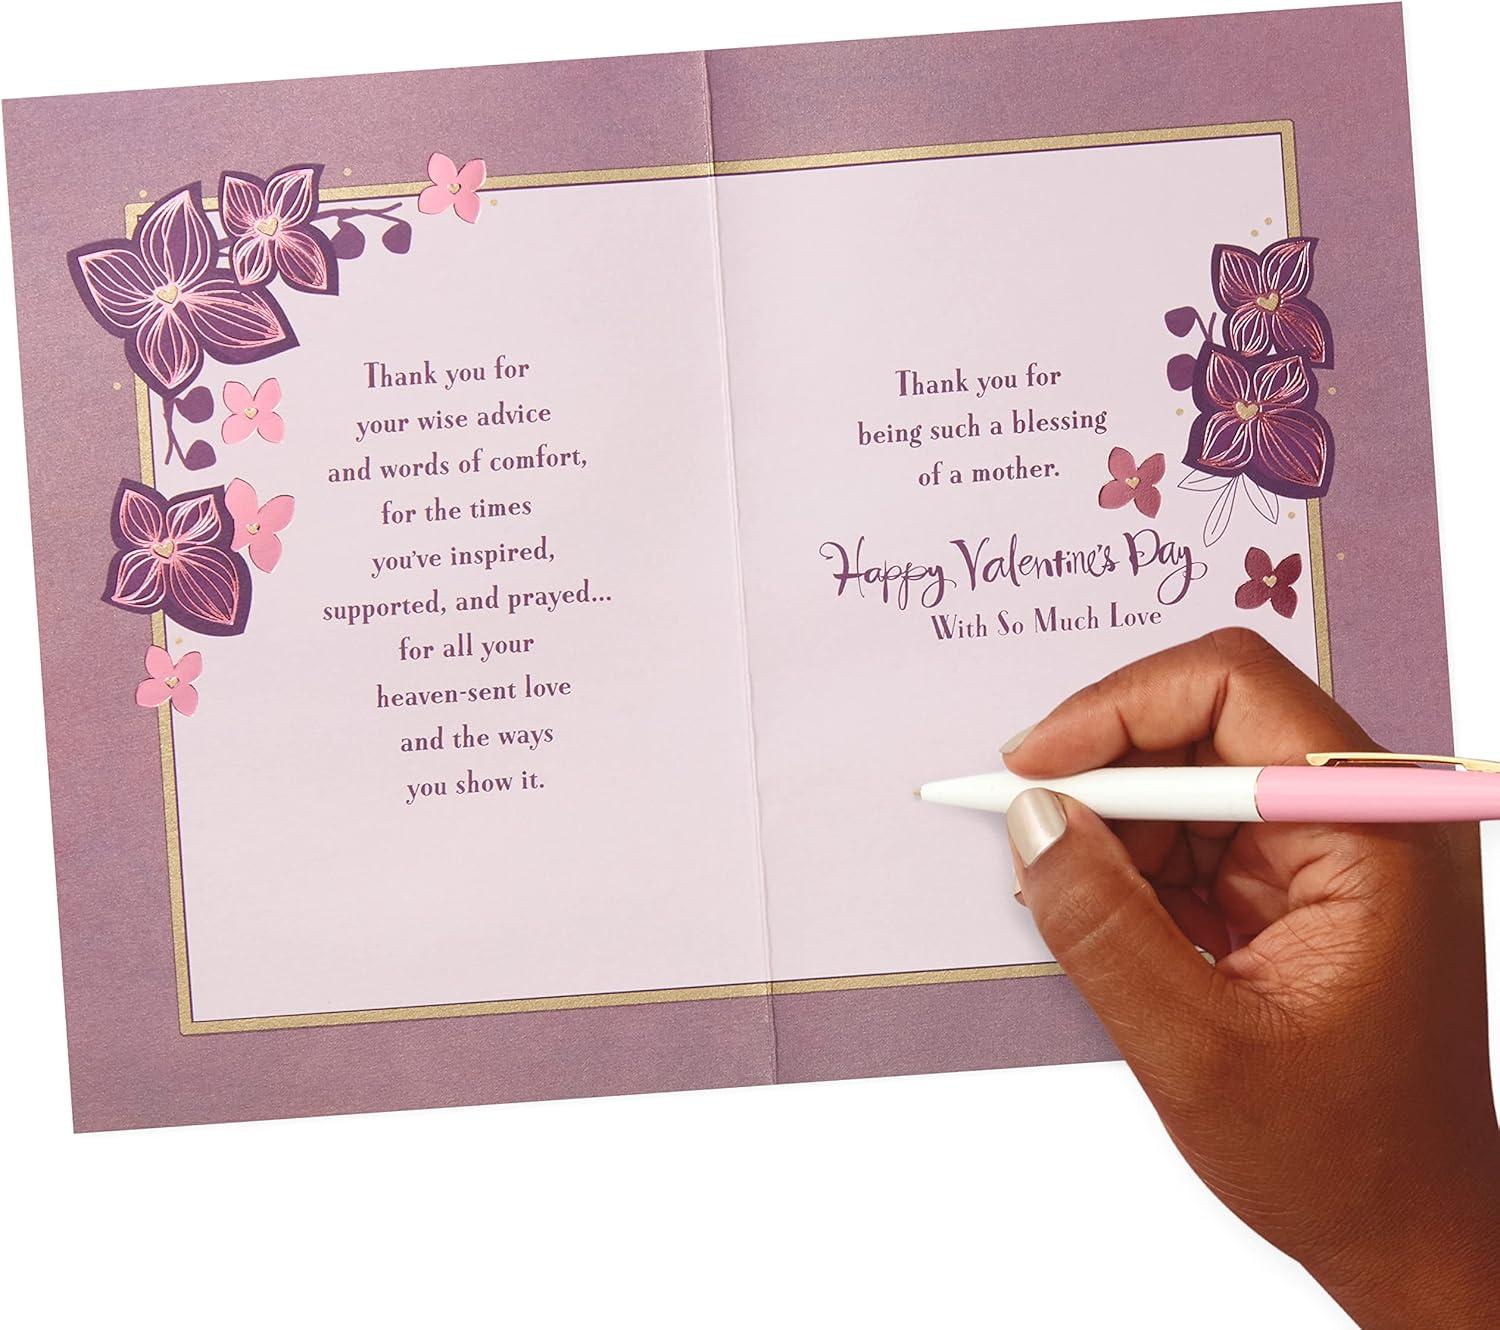 Thank you for
your wise advice
and words of comfort,
for the times
you've inspired,
supported, and prayed...
for all your
heaven-sent love
and the ways
you show it.
Thank you for
being such a blessing
of a mother.
Happy Valentine's Day
With So Much Love